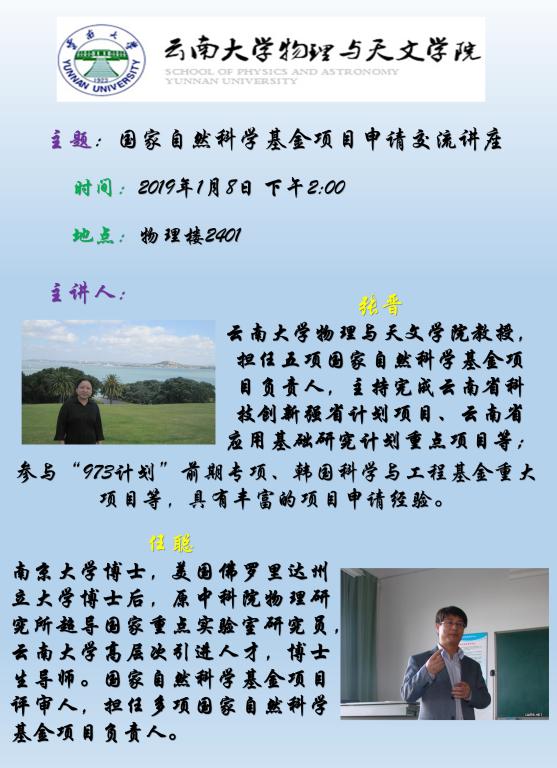 雲南大学
YUNNAN UNIVERSITY
1922
云南大学物理与天文学院
SCHOOL OF PHYSICS AND ASTRONOMY
YUNNAN UNIVERSITY
主题：国家自然科学基金项目申请交流讲座
时间：2019年1月8日 下午2:00
地点：物理楼2401
主讲人：
张晋
云南大学物理与天文学院教授，
担任五项国家自然科学基金项
目负责人，主持完成云南省科
技创新强省计划项目、云南省
应用基础研究计划重点项目等；
参与“973计划”前期专项、韩国科学与工程基金重大
项目等，具有丰富的项目申请经验。
任聪
南京大学博士，美国佛罗里达州
立大学博士后，原中科院物理研
究所超导国家重点实验室研究员，
云南大学高层次引进人才，博士
生导师。国家自然科学基金项目
评审人，担任多项国家自然科学
基金项目负责人。